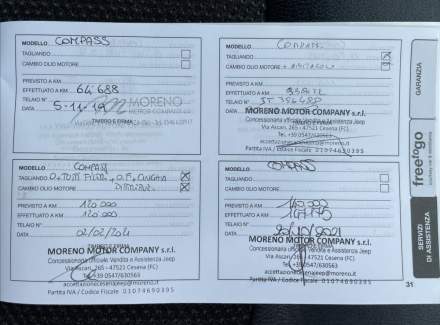 MODELLO COMPASS
TAGLIANDO
CAMBIO OLIO MOTORE
PREVISTO A KM
EFFETTUATO A KM 64 688
TELAIO N°
DATA 5-11-19
MORENO
MOTOR COMPANY
TIMBRO E FIRMA
MODELLO COMPASS
TAGLIANDO
CAMBIO OLIO MOTORE
PREVISTO A KM
EFFETTUATO A KM
TELAIO N°
DATA
MORENO MOTOR COMPANY s.r.l.
Concessionaria ufficiale Vendita e Assistenza Jeep
Via Ascari, 265 - 47521 Cesena (FC)
Tel. +39 0547/630563
accettazionecesenajeep@moreno.it
Partita IVA / Codice Fiscale 01074690395
MODELLO COMPASS
TAGLIANDO
CAMBIO OLIO MOTORE
PREVISTO A KM 120 000
EFFETTUATO A KM 120 000
TELAIO N°
DATA
TIMBRO E FIRMA
MORENO MOTOR COMPANY s.r.l.
Concessionaria ufficiale Vendita e Assistenza Jeep
Via Ascari, 265 - 47521 Cesena (FC)
Tel. +39 0547/630563
accettazionecesenajeep@moreno.it
Partita IVA / Codice Fiscale 01074690395
MODELLO COMPASS
TAGLIANDO
CAMBIO OLIO MOTORE
PREVISTO A KM
EFFETTUATO A KM
TELAIO N°
DATA
MORENO MOTOR COMPANY s.r.l.
Concessionaria ufficiale Vendita e Assistenza Jeep
Via Ascari, 265 - 47521 Cesena (FC)
Tel. +39 0547/630563
accettazionecesenajeep@moreno.it
Partita IVA / Codice Fiscale 01074690395
GARANZIA
freetogo
SERVIZI
DI ASSISTENZA
31